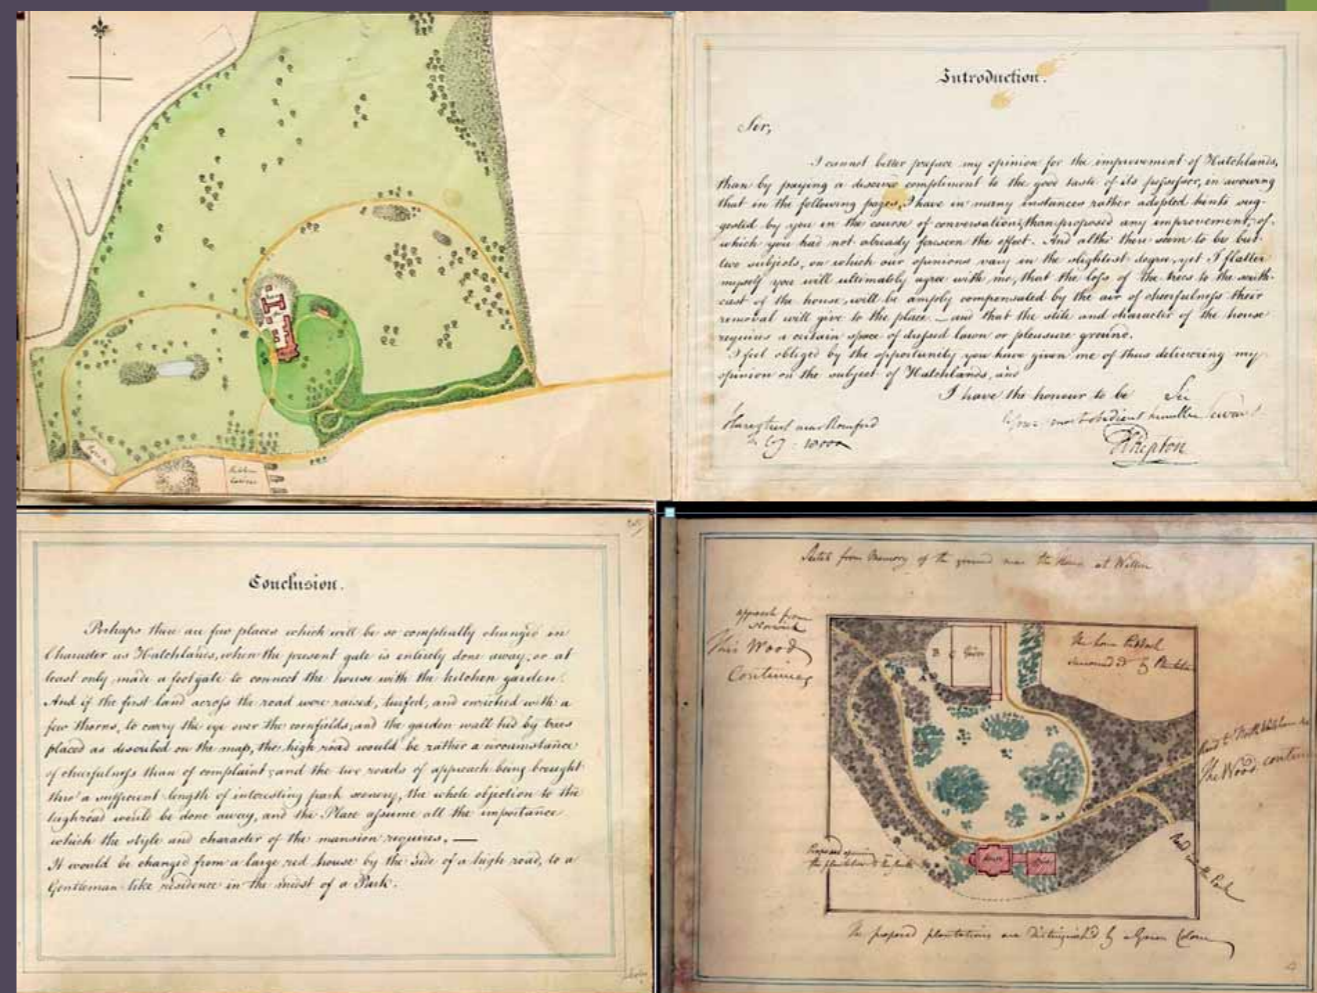 Introduction.
Sir,
I cannot better preface my opinion for the improvement of Hatchlands,
than by paying a deserved compliment to the good taste of its possessor, in avowing
that in the following pages, I have in many instances rather adopted hints sug-
gested by you in the course of conversation, than proposed any improvement, of
which you had not already foreseen the effect. And altho there seem to be but
two subjects, on which our opinions vary in the slightest degree, yet I flatter
myself you will ultimately agree with me, that the loss of the trees to the south-
east of the house, will be amply compensated by the air of cheerfulness their
removal will give to the place — and that the stile and character of the house
requires a certain space of dressed lawn or pleasure ground.
I feel obliged by the opportunity you have given me of thus delivering my
opinion on the subject of Hatchlands, and
I have the honour to be Sir
Your most obedient humble servant
Harestreet near Romford
HRepton
Kitchen
Garden
Conclusion.
Perhaps there are few places which will be so compleatly changed in
Character as Hatchlands, when the present gate is entirely done away, or at
least only made a footgate to connect the house with the kitchen garden.
And if the first land across the road were raised, turfed, and enriched with a
few thorns, to carry the eye over the cornfields, and the garden wall hid by trees
placed as described on the map, the high road would be rather a circumstance
of cheerfulness than of complaint; and the two roads of approach being brought
thro' a sufficient length of interesting park scenery, the whole objection to the
highroad would be done away, and the Place assume all the importance
which the style and character of the mansion requires. —
It would be changed from a large red house by the side of a high road, to a
Gentleman-like residence in the midst of a Park.
Sketch from Memory of the ground near the House at Witton
approach from
Norwich
This Wood
Continues
B C
A
The home Paddock
surrounded by
Road to North Walsham
The Wood continues
Proposed opening
House
Road in the Park
The proposed plantations are Distinguish'd by a Green Colour
4